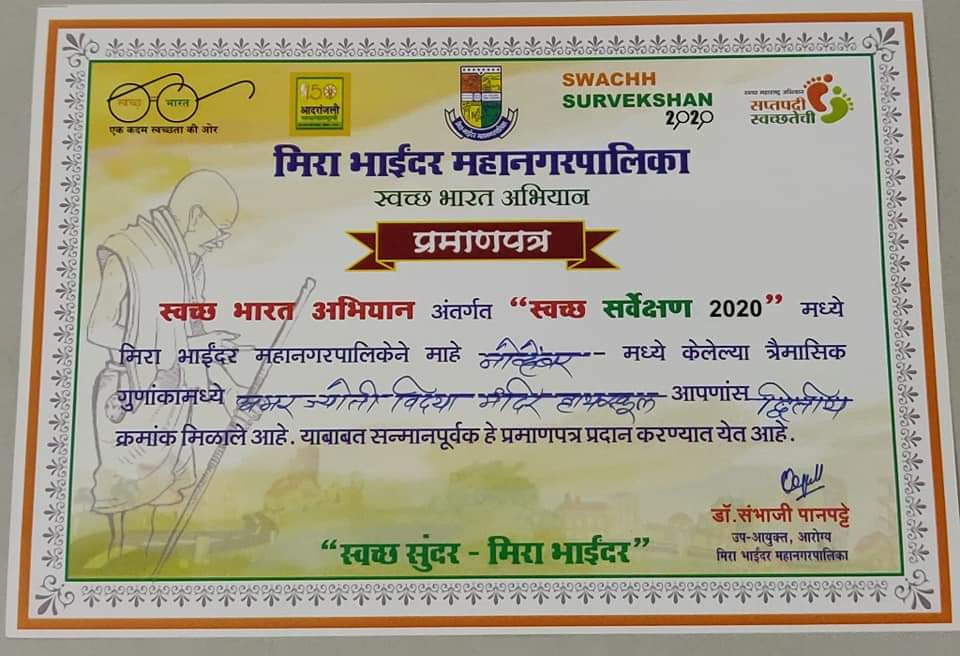 स्वच्छ भारत
एक कदम स्वच्छता की ओर
150
आदरांजली
SWACHH
SURVEKSHAN
2020
स्वच्छ महाराष्ट्र अभियान
सप्तपदी
स्वच्छतेची
मिरा भाईंदर महानगरपालिका
स्वच्छ भारत अभियान
प्रमाणपत्र
स्वच्छ भारत अभियान अंतर्गत “स्वच्छ सर्वेक्षण 2020” मध्ये
मिरा भाईंदर महानगरपालिकेने माहे नोव्हेंबर - मध्ये केलेल्या त्रैमासिक
गुणांकामध्ये अमर ज्योती विद्या मंदिर हायस्कूल आपणांस द्वितीय
क्रमांक मिळाले आहे. याबाबत सन्मानपूर्वक हे प्रमाणपत्र प्रदान करण्यात येत आहे.
डॉ.संभाजी पानपट्टे
उप-आयुक्त, आरोग्य
मिरा भाईंदर महानगरपालिका
“स्वच्छ सुंदर - मिरा भाईंदर”